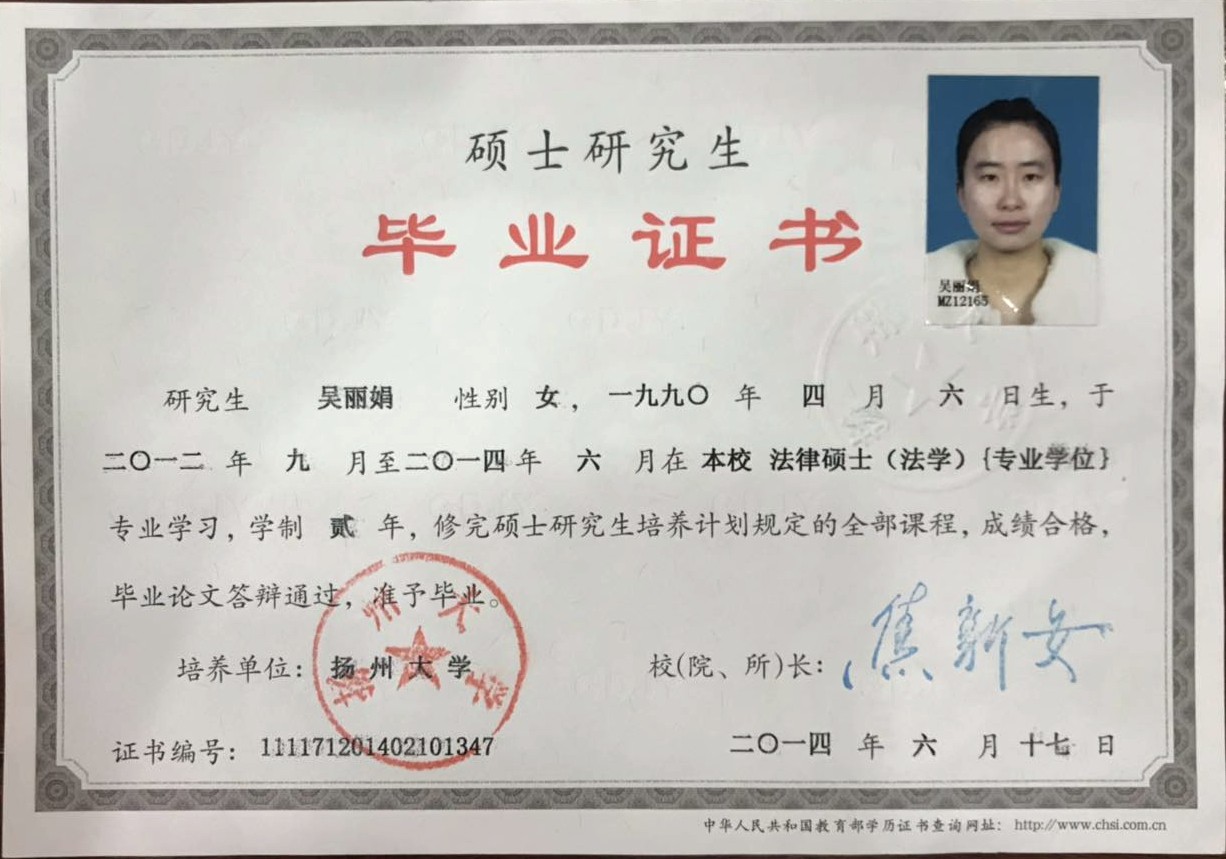 硕士研究生
毕业证书
吴丽娟
MZ12165
研究生 吴丽娟 性别 女，一九九〇 年 四 月 六 日生，于
二〇一二 年 九 月至二〇一四年 六 月在 本校 法律硕士（法学）{专业学位}
专业学习，学制 贰 年，修完硕士研究生培养计划规定的全部课程，成绩合格，
毕业论文答辩通过，准予毕业。
培养单位：扬州大学
扬州大学
校(院、所)长：焦新安
证书编号：111171201402101347
二〇一四 年 六 月 十七 日
中华人民共和国教育部学历证书查询网址：http://www.chsi.com.cn